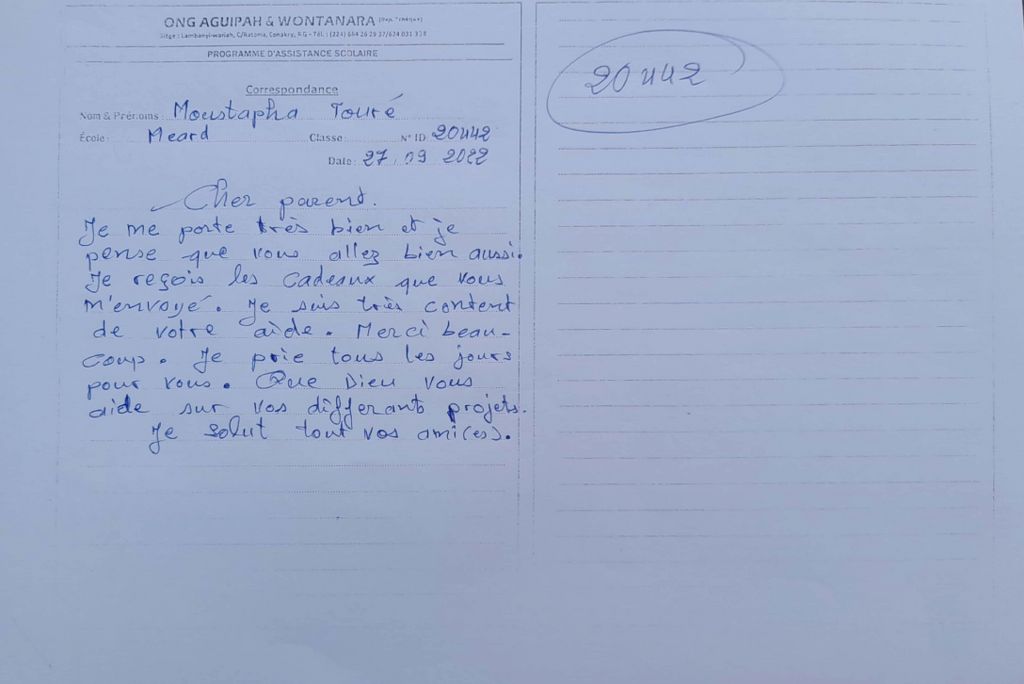 ONG AGUIPAH & WONTANARA
Siège : Lambanyi-wariah, C/Ratoma, Conakry, RG - Tél. : (224) 664 26 29 37/624 031 318
PROGRAMME D'ASSISTANCE SCOLAIRE
Correspondance
Nom & Prénoms : Moustapha Touré
École : Meard Classe : N° ID: 20442
Date : 27 / 09 2022
Cher parent.
Je me porte très bien et je
pense que vous allez bien aussi.
Je reçois les cadeaux que vous
m'envoyé. Je suis très content
de votre aide. Merci beau-
coup. Je prie tous les jours
pour vous. Que Dieu vous
aide sur vos differants projets.
Je salut tout vos ami(es).
20442